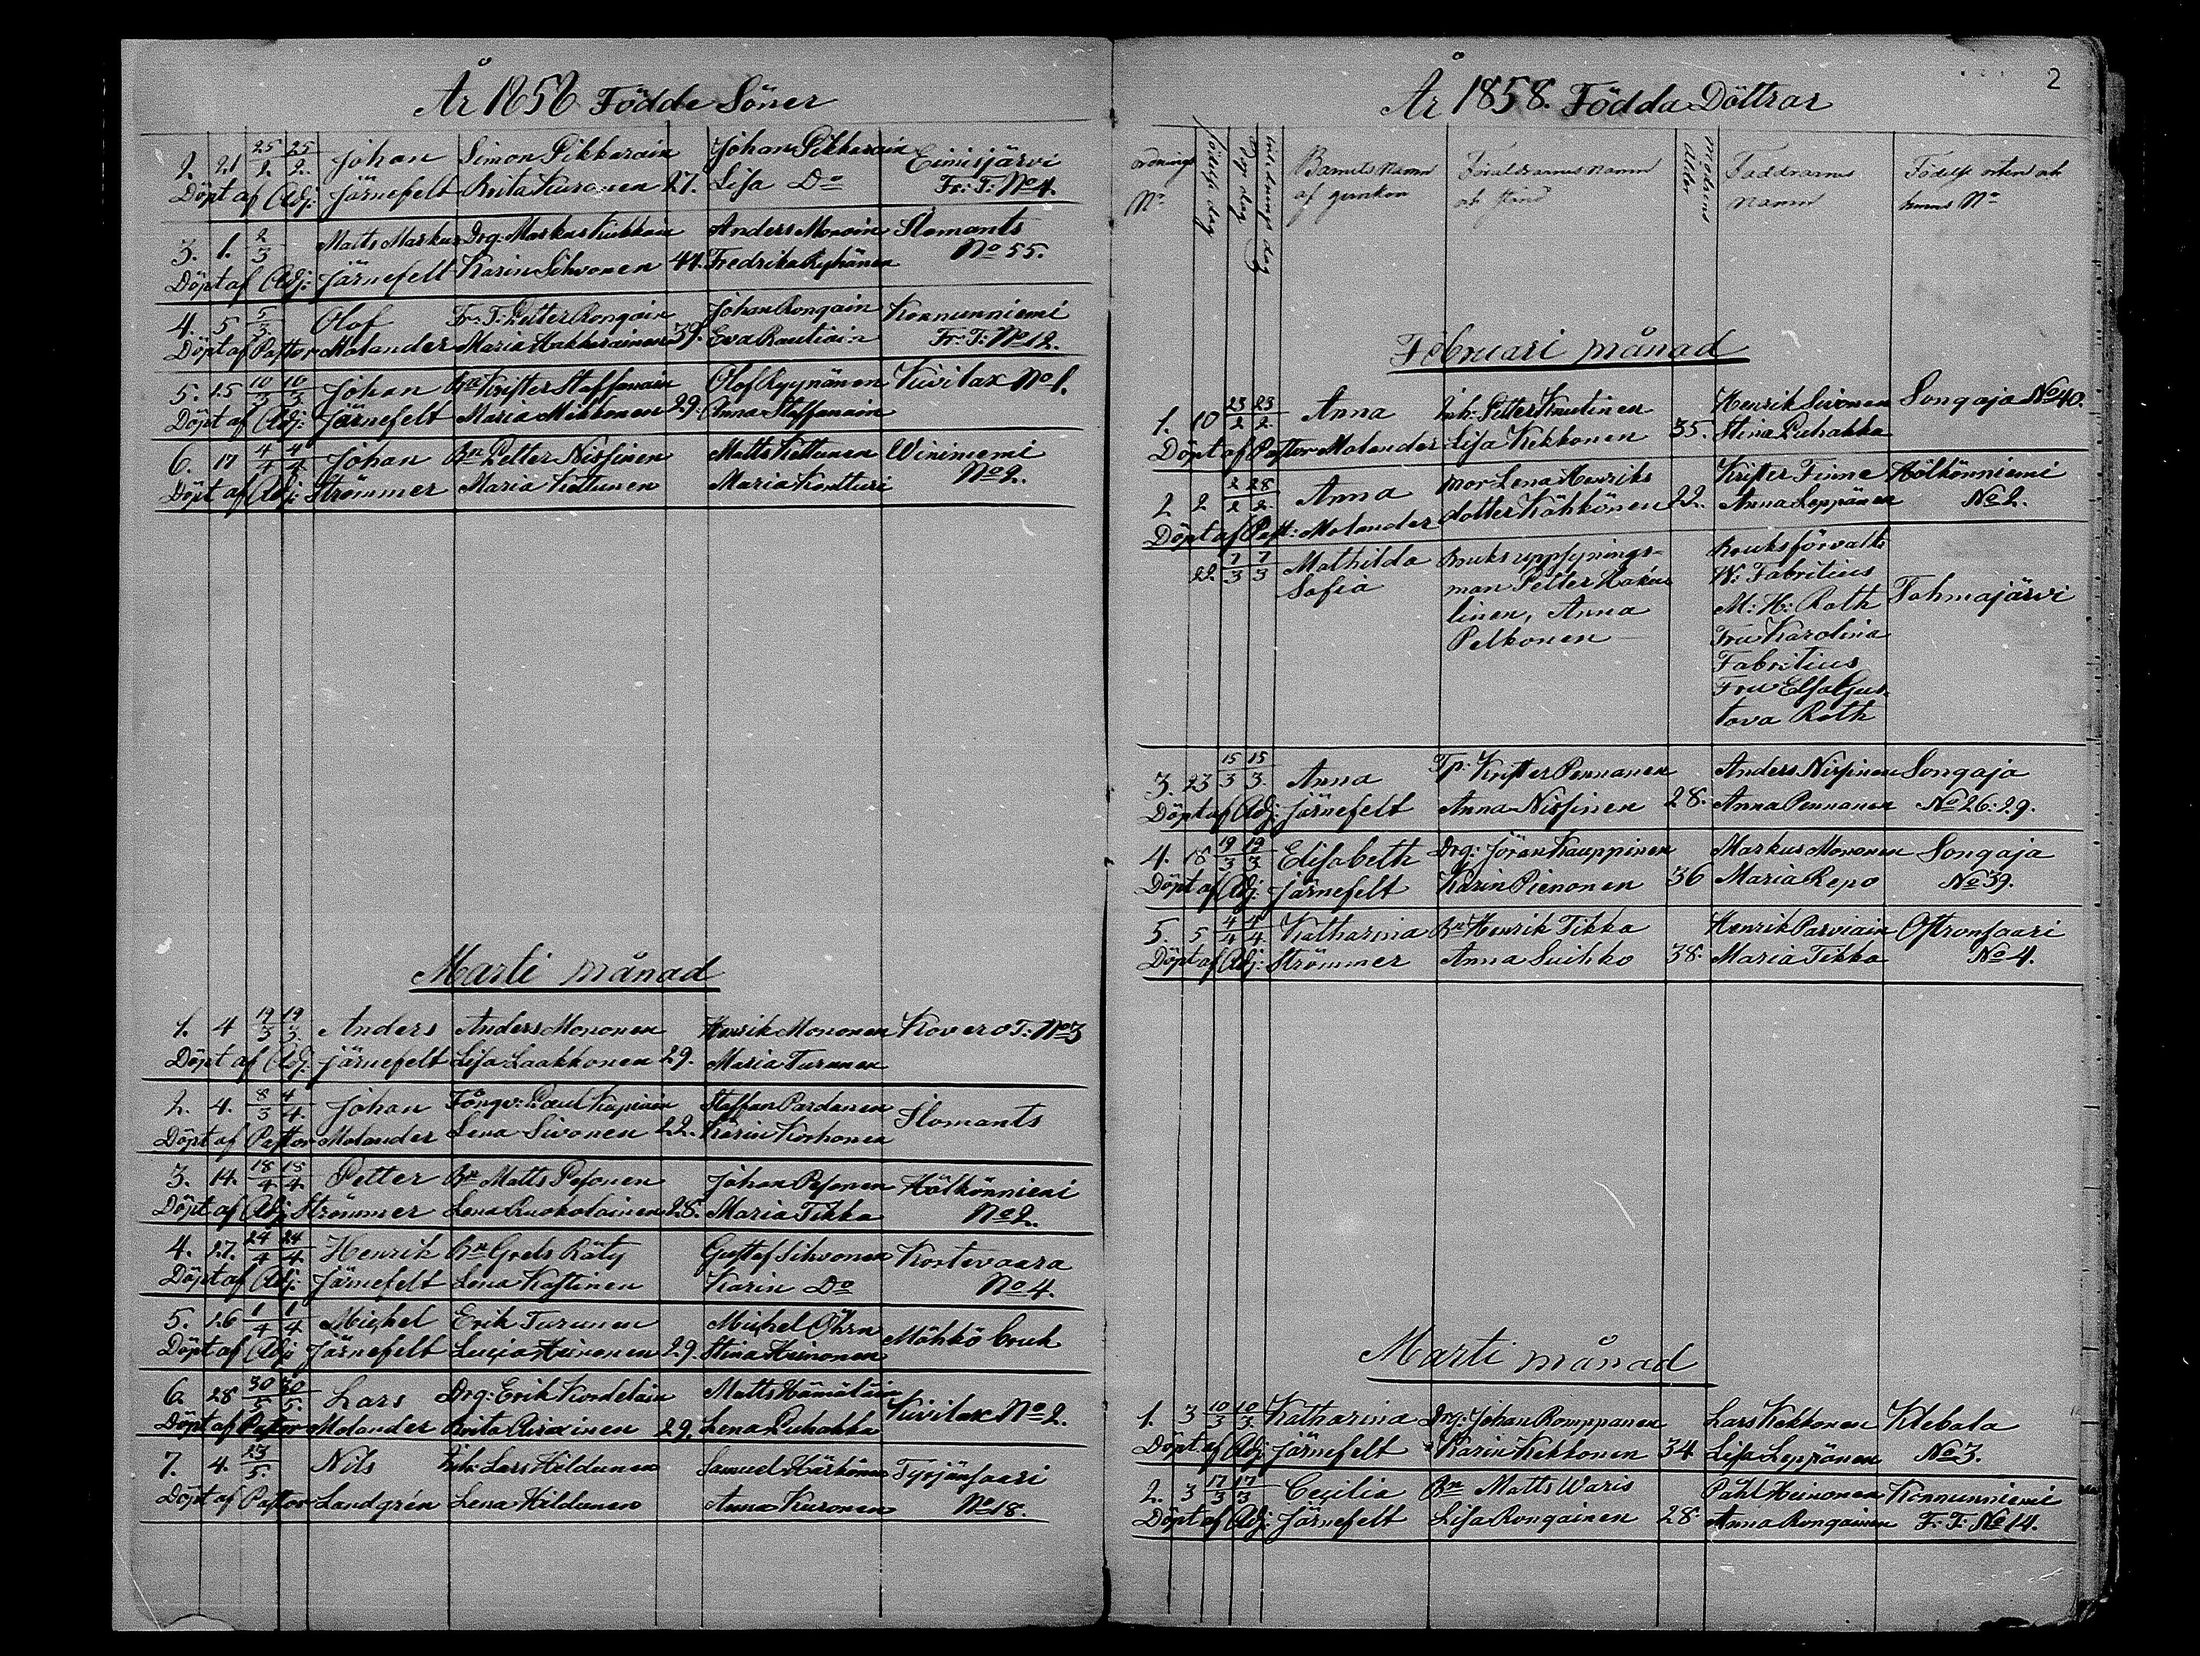 År 1858 Födde Söner
2. 21 25/2. 25/2. Johan Simon Pikkarain Johan Pikkarain Einisjärvi
Döpt af Adj: Järnefelt Brita Kuronen 27. Lisa Do Fr: T: No 4.
3. 1. 2/3 Matts Markus Drg: Markus Kukkoin Anders Mononin Ilomants
Döpt af Adj: Järnefelt Karin Sihvonen 44. Fredrika Ryhänen No 55.
4. 5 5/3. Olof Fr: T: Petter Rongain Johan Rongain Konnunniemi
Döpt af Pastor Molander Maria Kakkurainen 39. Eva Rautiain Fr: T: No 12.
5. 15 10/3 10/3 Johan Bn Krister Staffanain Olof Ryynänen Kivilax No 1.
Döpt af Adj: Järnefelt Maria Mikkonen 29. Anna Staffanain
6. 17 4/4 4/4. Johan Bn Petter Nissinen Matts Kettunen Wininiemi
Döpt af Adj: Strömmer Maria Kettunen Maria Kontturi No 2.
Marti månad
1. 4 19/3 19/3. Anders Anders Mononen Henrik Mononen Kovero T: No 3
Döpt af Adj: Järnefelt Lisa Laakkonen 29. Maria Turunen
2. 4. 8/3 4/4. Johan Fångv: Paul Staffan Pardanen Ilomants
Döpt af Pastor Molander Lena Sivonen 22. Karin Korhonen
3. 14. 18/4 18/4. Petter Bn Matts Pesonen Johan Pesonen Hölkönniemi
Döpt af Adj Strömmer Lena Ruokolainen 28. Maria Tikka No 2.
4. 27. 24/4 24/4. Henrik Bn Grels Räty Gustaf Sihvonen Kortevaara
Döpt af Adj: Järnefelt Lena Kostinen Karin Do No 4.
5. 26 1/4 1/4. Michel Erik Turunen Michel Öhrn Möhkö bruk
Döpt af Adj: Järnefelt Lucia Heinonen 29. Stina Heinonen
6. 28 30/5 30/5. Lars Drg: Erik Kordelain Matts Hämäläin Kivilax No 2.
Döpt af Pastor Molander Brita 29. Lena Puhakka
7. 4. 23/5. Nils Inh: Lars Hildunen Samuel Härkönen Tyrjänsaari
Döpt af Pastor Landgrén Lena Hildunen Anna Kuronen No 18.
2
År 1858. Födda Döttrar
ordnings No födelse dag Döpe dag Barnets Namn af qvinkön Föräldrarnes namn och stånd Modrens Ålder Faddrarnes namn Födelse orten och hems No
Februari månad
1. 10 23/2 23/2. Anna Inh: Petter Knutinen Henrik Sivonen Songaja No 40.
Döpt af Pastor Molander Lisa Kekkonen 35. Stina Puhakka
2 2 2/2 28/2. Anna mor Lena Henriks Krister Finne Hölkönniemi
Döpt af Past: Molander dotter Kähkönen 22. Anna Leppänen No 2.
22. 7/3 7/3 Mathilda Bruksuppsynings- Bruksförvalt: Tohmajärvi
Sofia man Petter W: Fabritius
linen, Anna M: H: Roth
Pelkonen Fru Karolina
Fabritius
Fru Elsa Gus-
tava Roth
3. 23 15/3 15/3. Anna Tp: Krister Pennanen Anders Nissinen Songaja
Döpt af Adj: Järnefelt Anna Nissinen 28. Anna Pennanen No 26: 29.
4. 18 19/3 19/3 Elisabeth Drg: Jöran Kauppinen Markus Mononen Songaja
Döpt af Adj: Järnefelt Karin Pienonen 36 Maria Repo No 39.
5. 5 4/4 4/4. Katharina Bn Henrik Tikka Henrik Parviain Oftronsaari
Döpt af Adj: Strömmer Anna Suihko 38. Maria Tikka No 4.
Marti månad
1. 3 10/3 10/3 Katharina Drg: Johan Romppanen Lars Kekkonen Klebala
Döpt af Adj: Järnefelt Karin Kekkonen 34 Lisa Leppänen No 3.
2. 3 17/3 17/3 Cecilia Bn Matts Waris Pahl Heinonen Konnunniemi
Döpt af Adj: Järnefelt Lisa Rongainen 28 Anna Rongainen F: T: No 14.